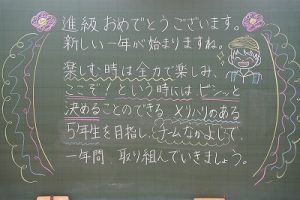 進級おめでとうございます。
新しい一年が始まりますね。
楽しむ時は全力で楽しみ、
ここぞ！という時にはビシッと
決めることのできる、メリハリのある
5年生を目指し、チームなかよしで、
一年間、取り組んでいきましょう。